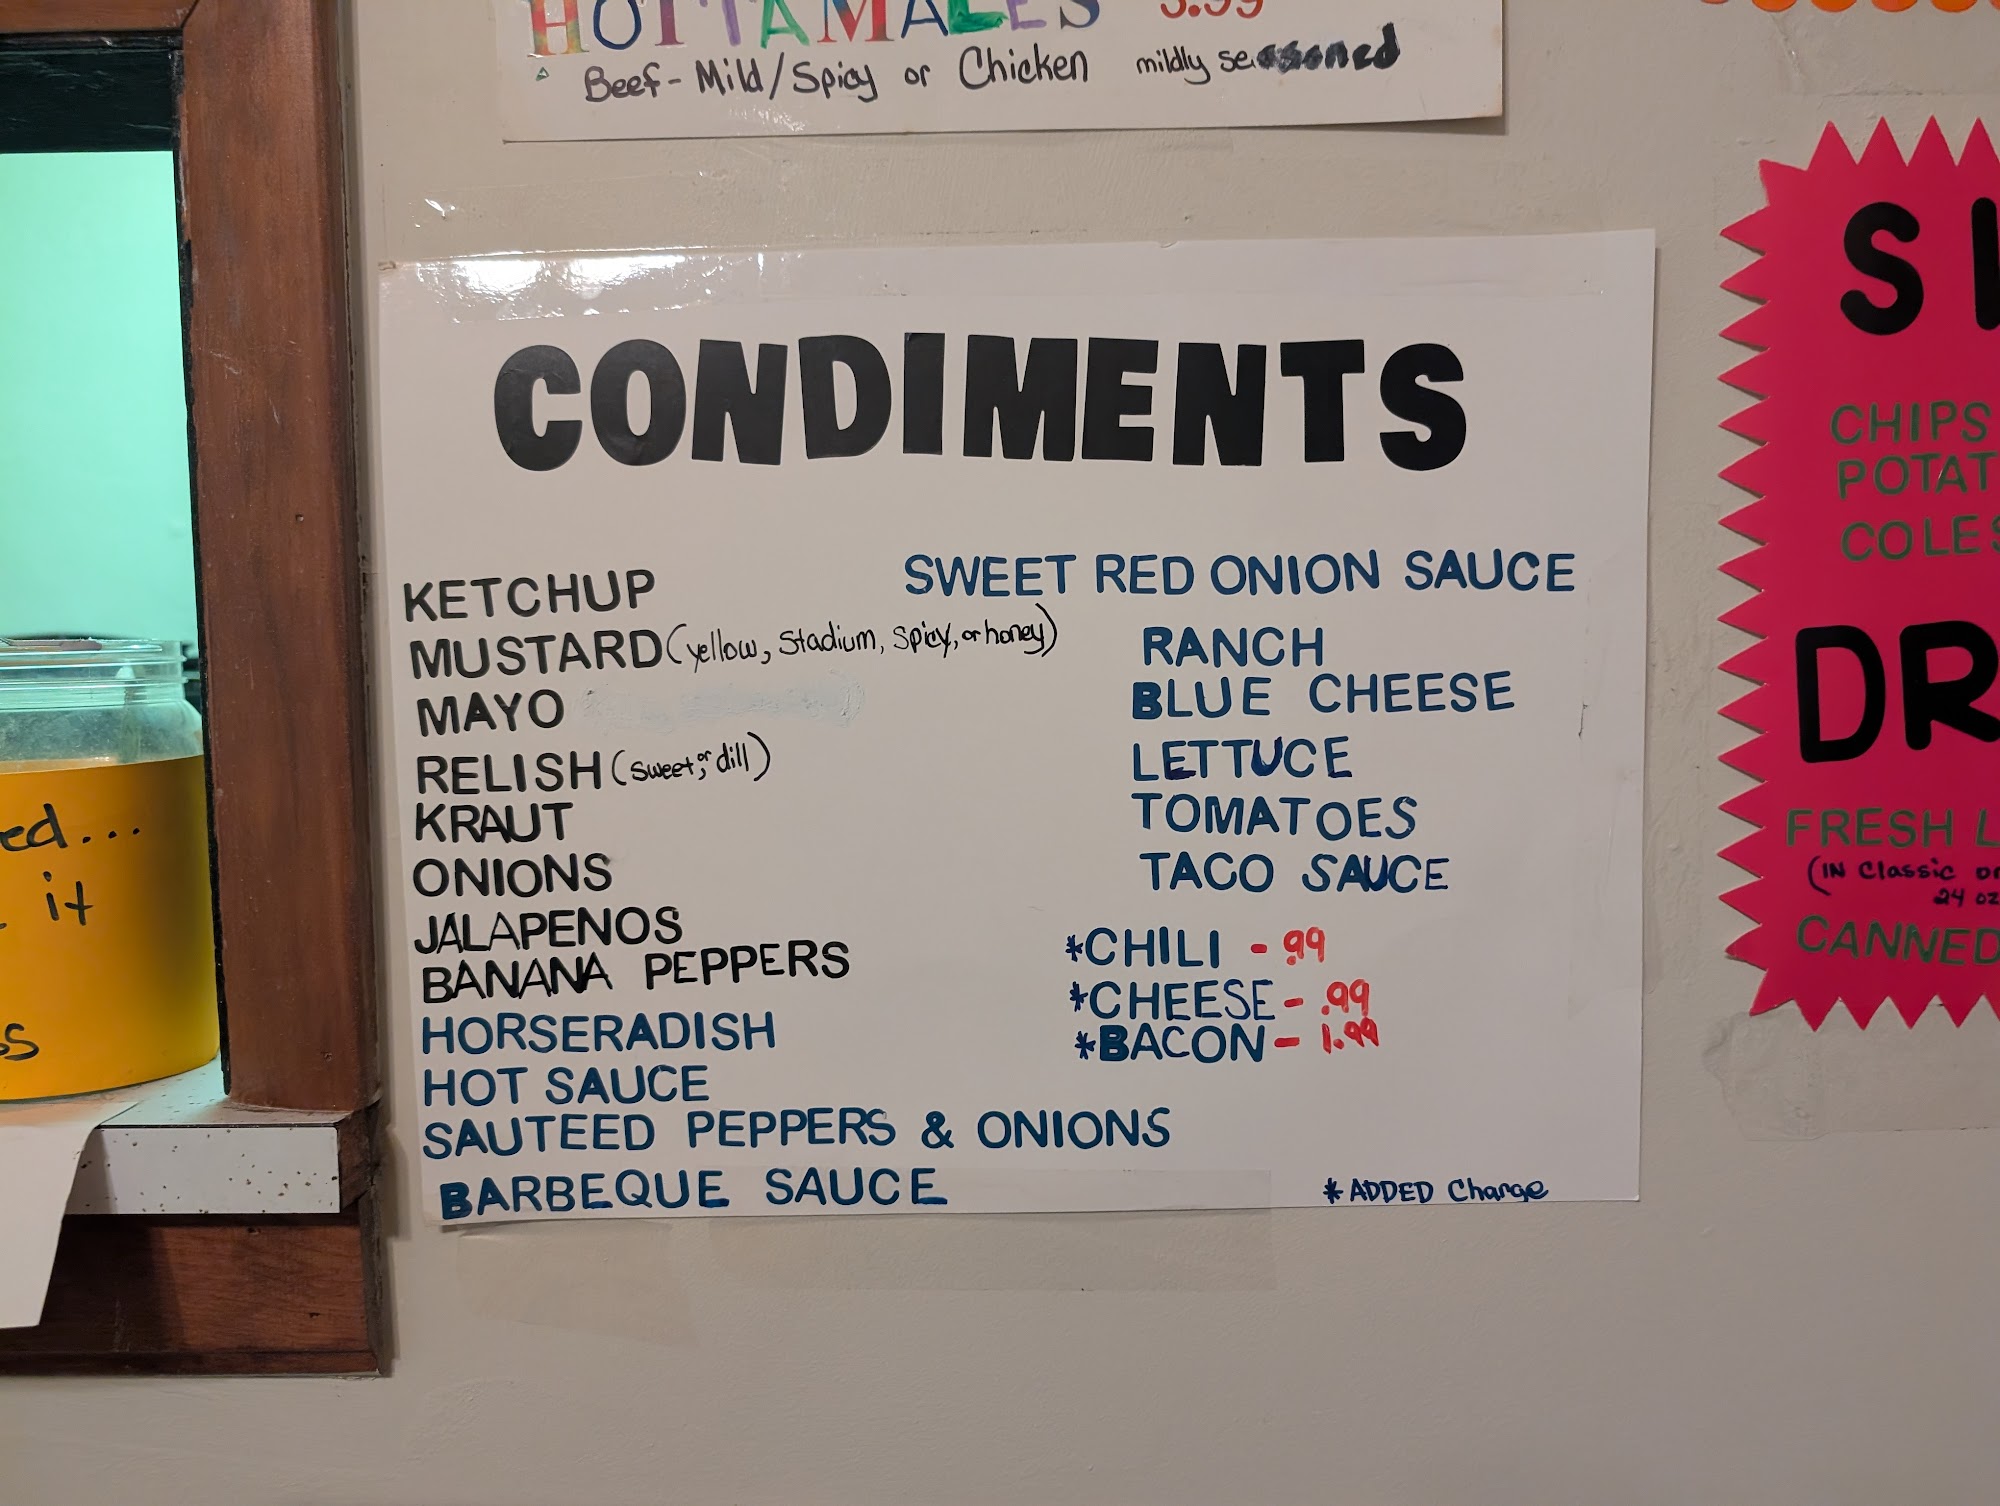 HOT TAMALES 3.99
Beef - Mild/Spicy or Chicken mildly seasoned
CONDIMENTS
KETCHUP
MUSTARD (yellow, Stadium, Spicy, or honey)
MAYO
RELISH (sweet, or dill)
KRAUT
ONIONS
JALAPENOS
BANANA PEPPERS
HORSERADISH
HOT SAUCE
SAUTEED PEPPERS & ONIONS
BARBEQUE SAUCE
SWEET RED ONION SAUCE
RANCH
BLUE CHEESE
LETTUCE
TOMATOES
TACO SAUCE
*CHILI - .99
*CHEESE - .99
*BACON - 1.99
*ADDED Charge
CHIPS
POTAT
COLES
DR
FRESH L
(IN Classic
24 oz
CANNED
ed...
it